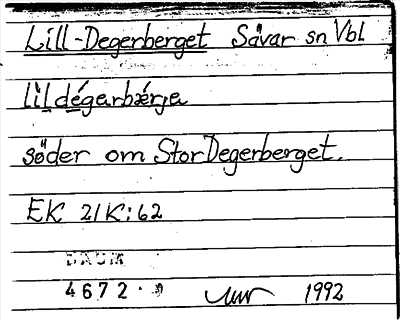 Lill-Degerberget Sävar sn Vbl
lil dégarbǽrje
söder om StorDegerberget.
EK 21K:62
DAUM
4672
1992